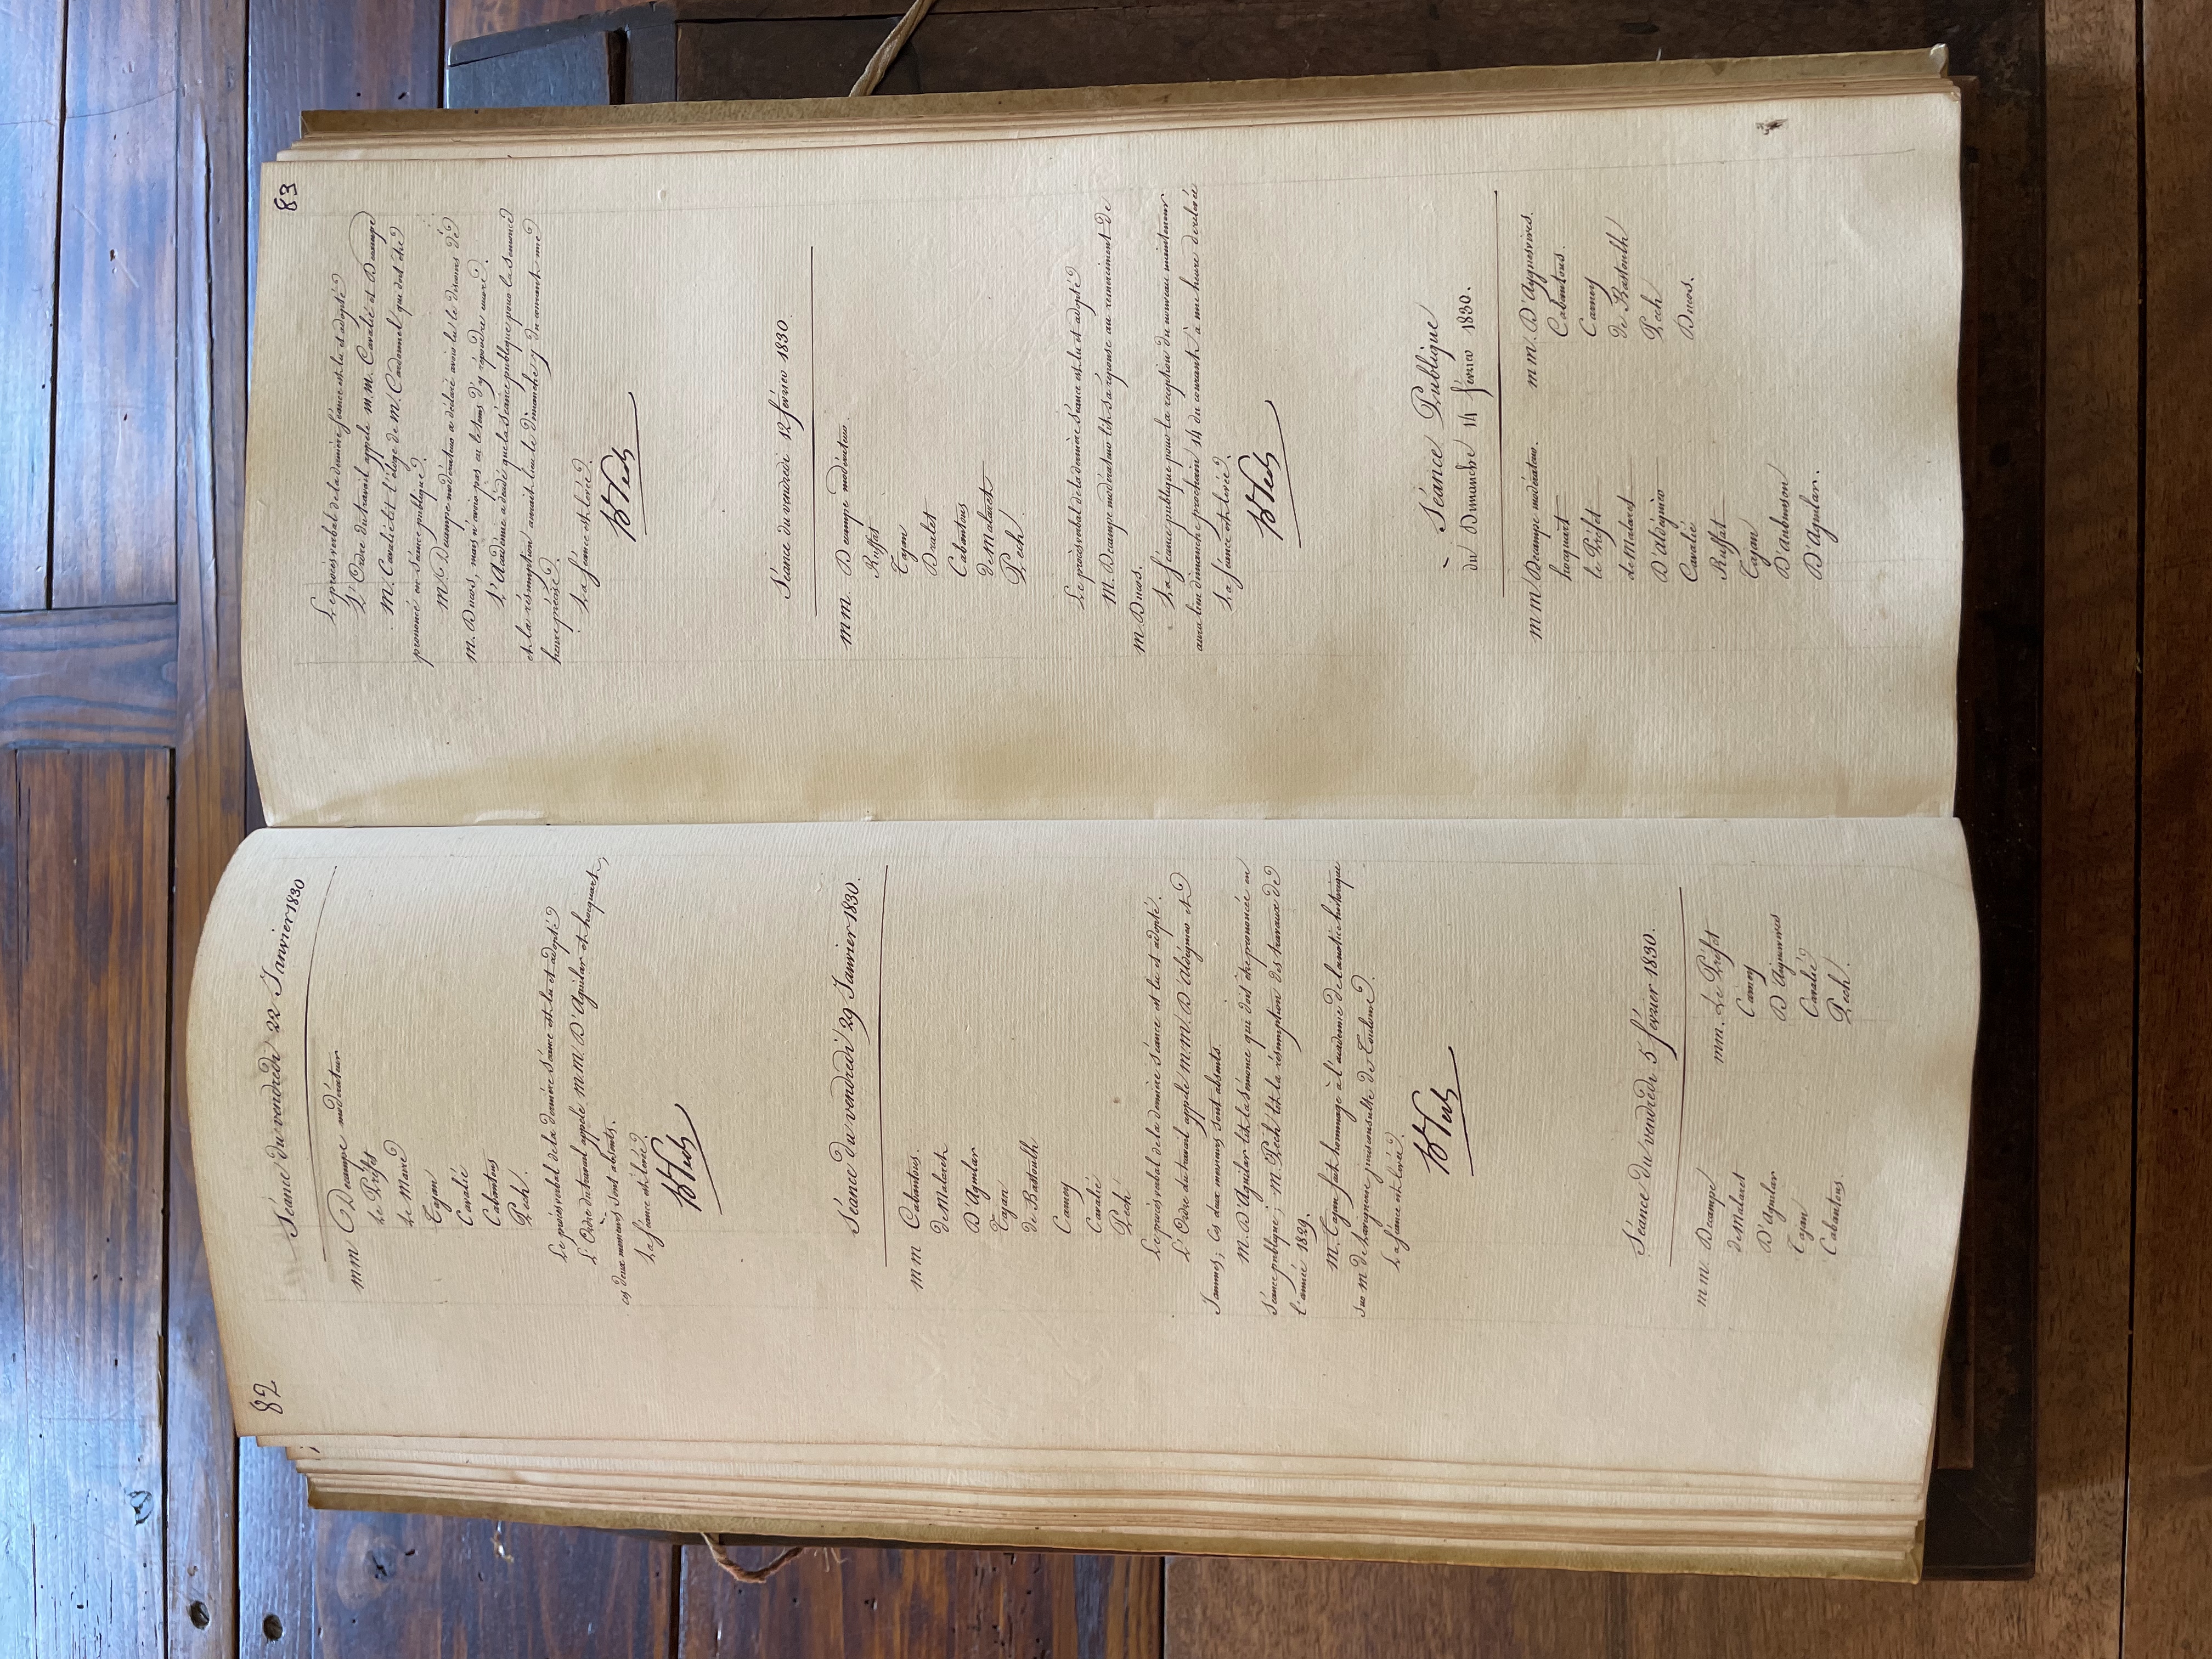 82
Séance du vendredi 22 Janvier 1830
mm Decampe modérateur
Le Préfet
Le Maire
Tajan
Cavalié
Cabantous
Pech.
Le procès verbal de la dernière séance est lu et adopté
L'Ordre du travail appele m.m. D'Aguilar et hocquart,
ces deux messieurs sont absents.
La séance est levée.
Séance du vendredi 29 Janvier 1830.
mm Cabantous.
de Malaret
D'Aguilar
Tajan
de Bastoulh
Carney
Cavalié
Pech
Le procès verbal de la dernière séance est lu et adopté.
L'Ordre du travail appele m.m. D'Aldéguier et
Jammes, Ces deux messieurs sont absents.
M. D'Aguilar lit la sémonce qui doit être prononcée en
séance publique; M. Pech lit la résomption des travaux de
l'année 1829.
M. Tajan fait hommage à l'académie de la notice historique
sur m de Lavigne jurisconsulte de Toulouse.
La séance est levée.
Séance du vendredi 5 février 1830.
mm. Decampe
de Malaret
D'Aguilar
Tajan
Cabantous
mm. Le Préfet
Carney
D'Aiguesvives
Cavalié
Pech.
83
Le procès verbal de la dernière séance est lu et adopté
L'Ordre du travail appele m.m. Cavalié et Decampe
M. Cavalié lit l'éloge de m. Cardonnel qui doit être
prononcé en séance publique.
M. Decampe modérateur a déclaré avoir lu le discours de
m. Ducos, mais n'avoir pas eu le tems d'y répondre encore.
L'Académie a décidé que la séance publique pour la semonce
et la résomption aurait lieu le dimanche 7 du courant à une
heure précise.
La séance est levée.
Séance du vendredi 12 février 1830.
mm. Decampe modérateur.
Ruffat
Tajan
Dralet
Cabantous
de Malaret
Pech.
Le procès verbal de la dernière séance est lu et adopté
M. Decampe modérateur lit sa réponse au remerciment de
m. Ducos.
La séance publique pour la reception du nouveau mainteneur
aura lieu dimanche prochain 14 du courant à une heure de relevée
La séance est levée.
Séance Publique
du Dimanche 14 février 1830.
m m. Decampe modérateur.
hocquart
le Préfet
de Malaret
D'aldéguier
Cavalié
Ruffat
Tajan
D'aubuisson
D'aguilar.
m m. D'Aiguesvives.
Cabantous.
Carney
de Bastoulh
Pech
Ducos.